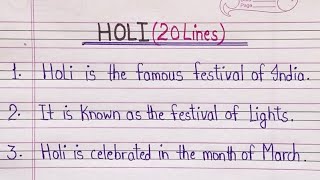 Page
HOLI (20 Lines)
1. Holi is the famous festival of India.
2. It is Known as the festival of Lights.
3. Holi is celebrated in the month of March.